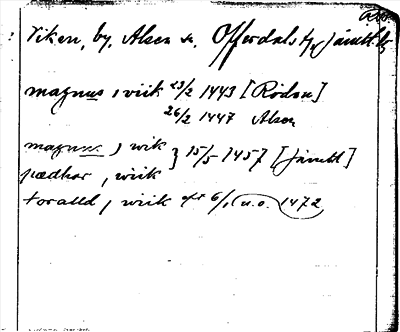 Viken, by, Alsen sn. Offerdals tg, Jämtl. l.
magnus, i viik 23/2 1443 [Rödön]
26/2 1447 Alsen
magnus, i wik } 15/5 1457 [Jämtl]
pædhar, i wiik
toralld, i wiik eft 6/1 u.o. 1472